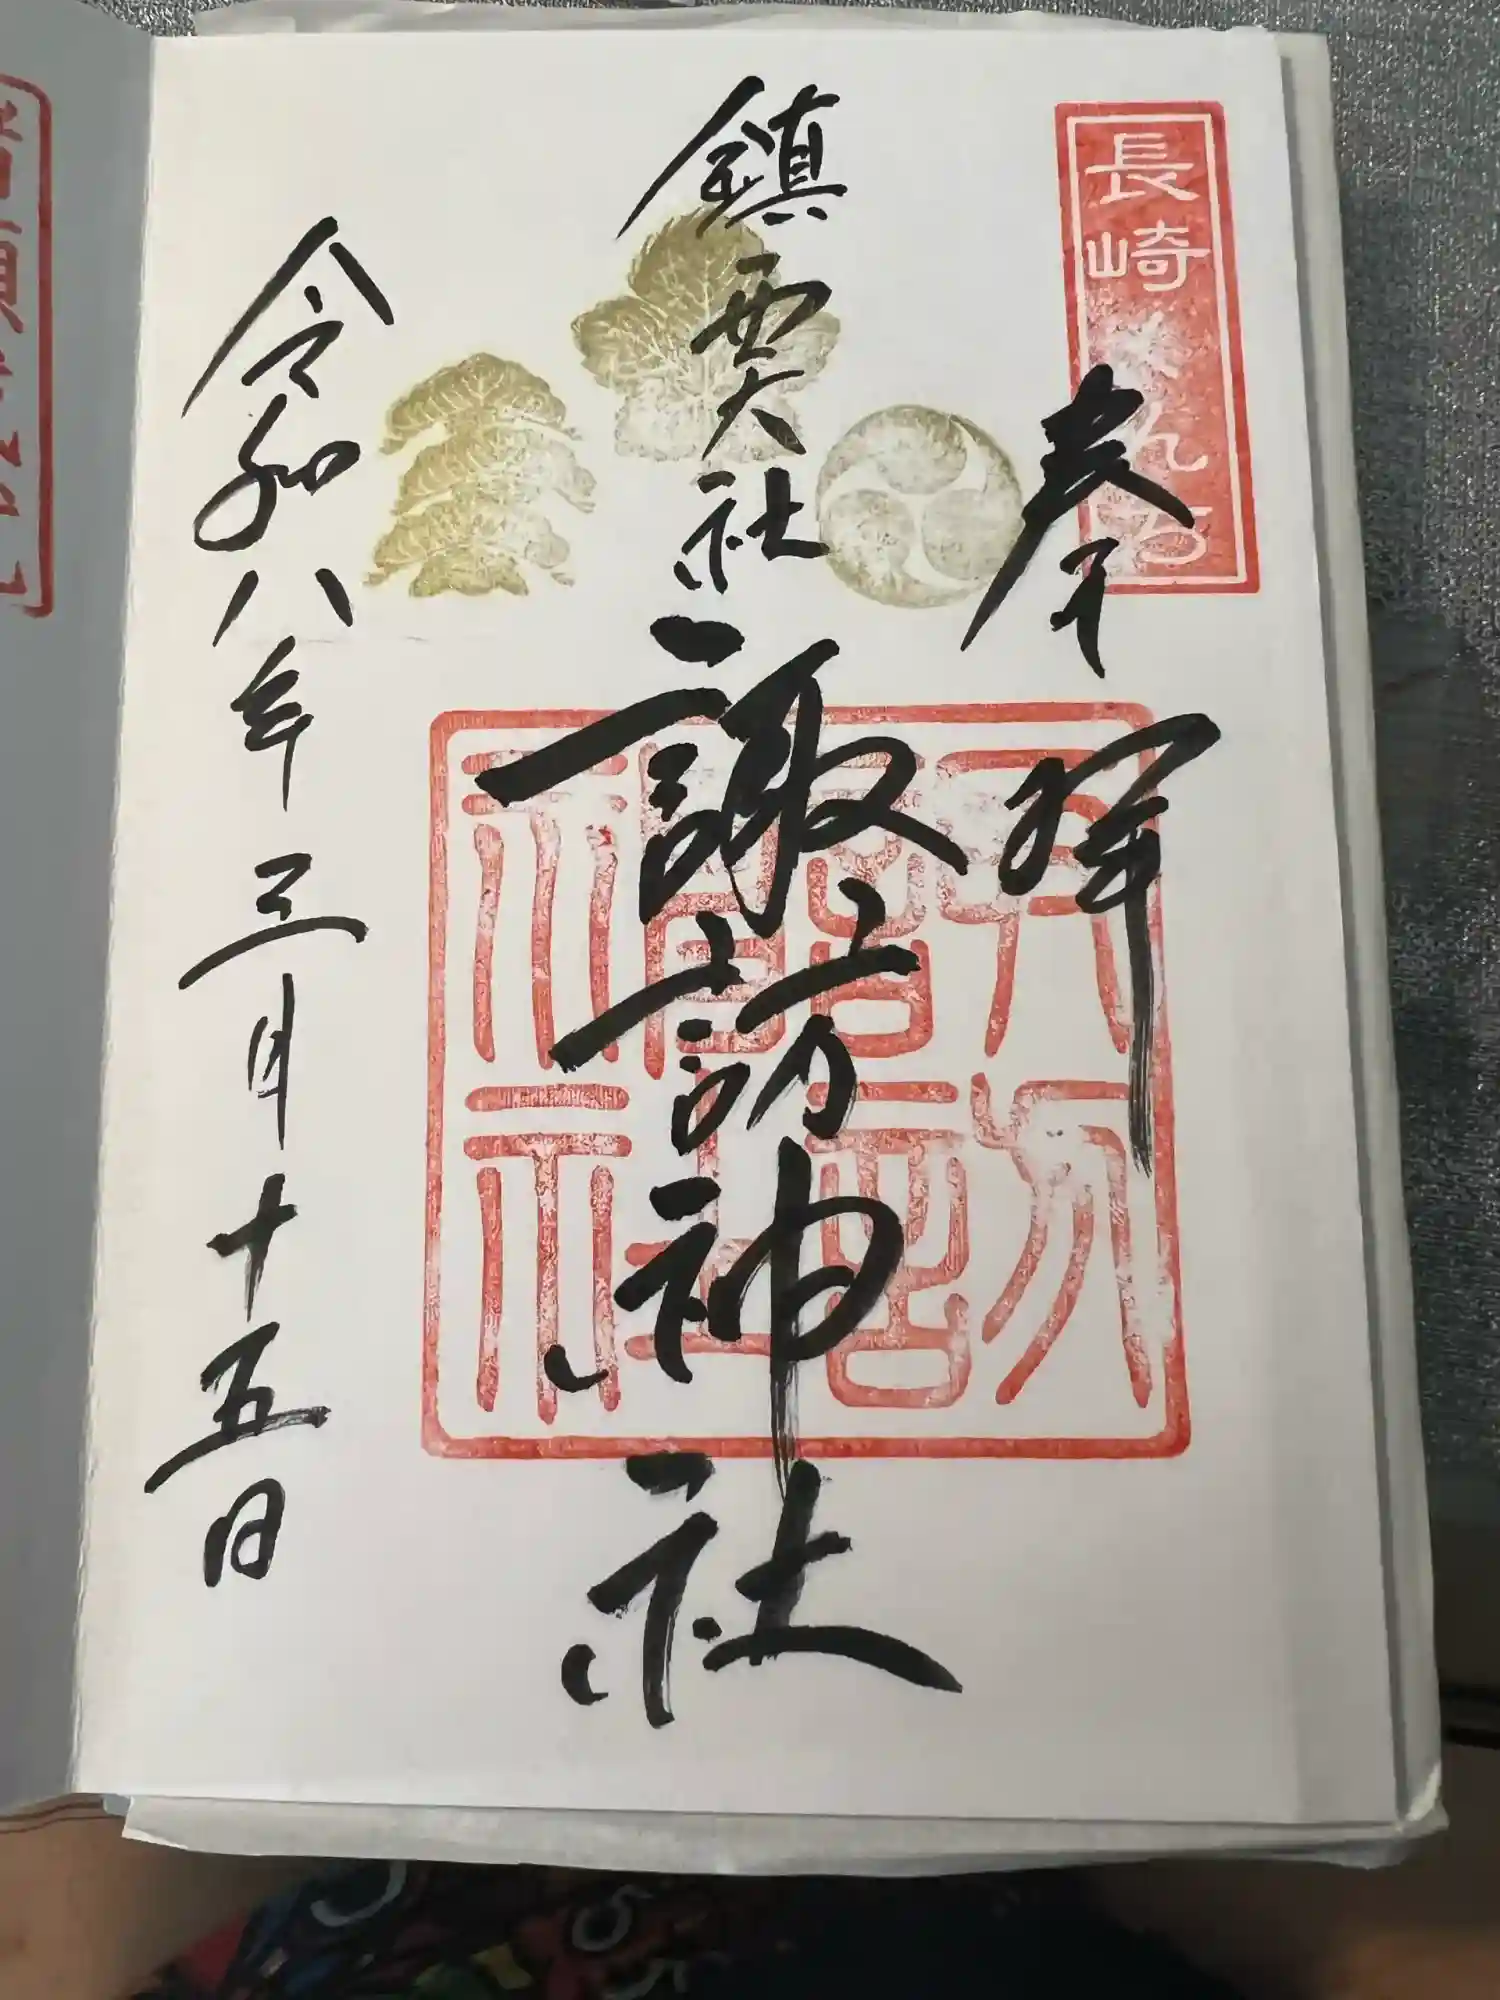 長崎くんち
奉拝
鎮西大社
諏訪神社
令和八年三月十五日